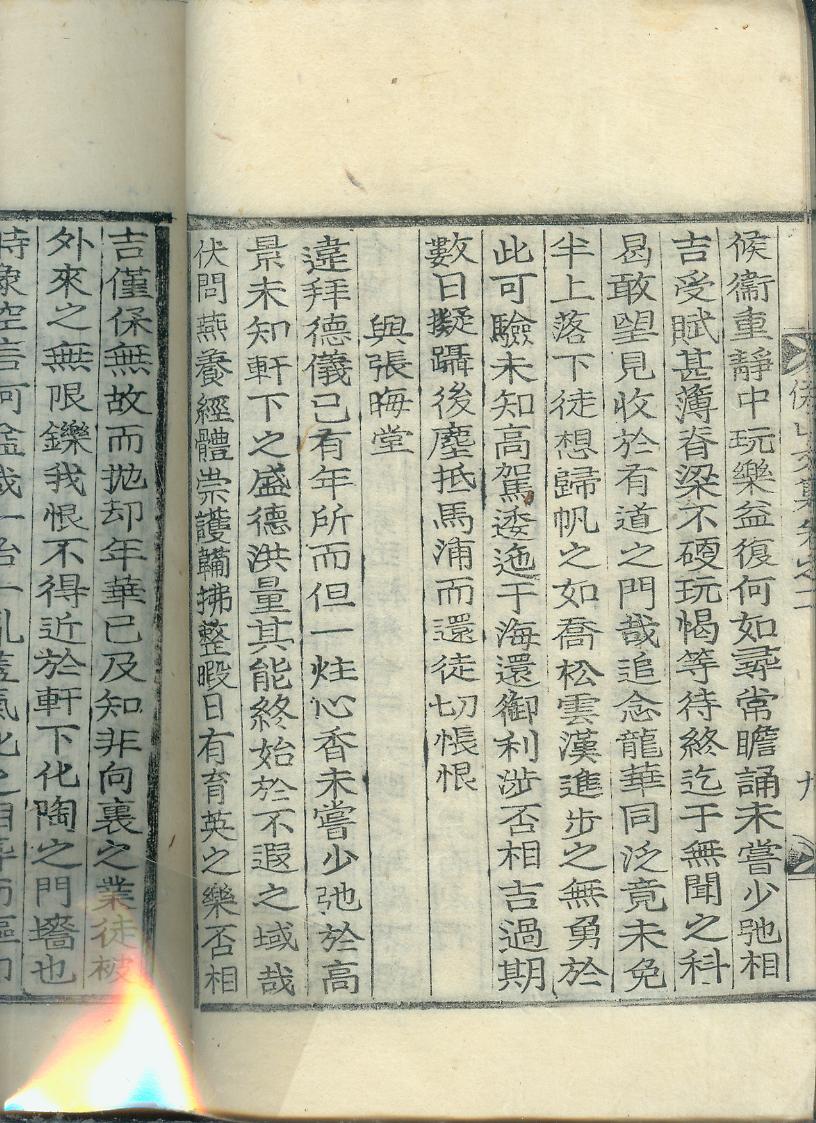 文集卷之二
九
候衛重靜中玩樂益復何如尋常瞻誦未嘗少弛相
吉受賦甚薄脊梁不硬玩愒等待終迄于無聞之科
曷敢望見收於有道之門哉追念龍華同泛竟未免
半上落下徒想歸帆之如喬松雲漢進步之無勇於
此可驗未知高駕逶迤于海還御利涉否相吉過期
數日擬躡後塵抵馬浦而還徒切悵恨
與張晦堂
違拜德儀已有年所而但一炷心香未嘗少弛於高
景未知軒下之盛德洪量其能終始於不遐之域哉
伏問燕養經體崇護韛拂整暇日有育英之樂否相
吉僅保無故而拋却年華已及知非向裏之業徒被
外來之無限鑠我恨不得近於軒下化陶之門墻也
空言何益哉一治一亂